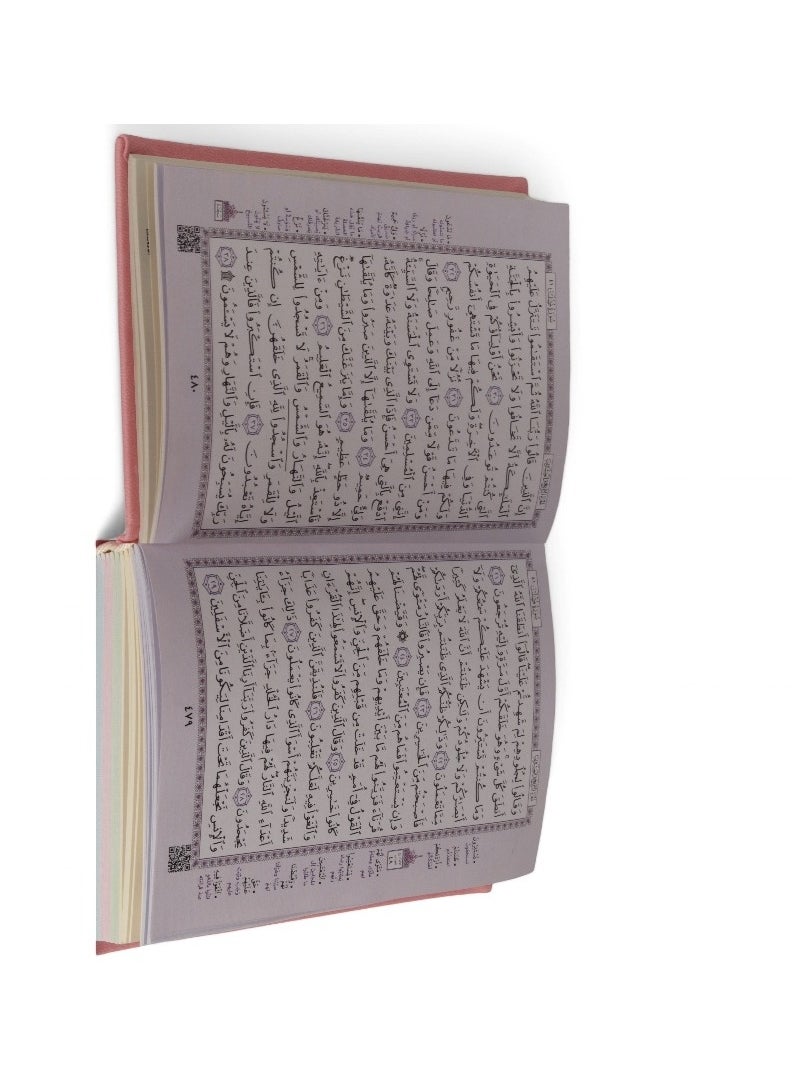 وَقَالُوا۟ لِجُلُودِهِمْ لِمَ شَهِدتُّمْ عَلَيْنَا ۖ قَالُوٓا۟ أَنطَقَنَا ٱللَّهُ ٱلَّذِىٓ
أَنطَقَ كُلَّ شَىْءٍ وَهُوَ خَلَقَكُمْ أَوَّلَ مَرَّةٍ وَإِلَيْهِ تُرْجَعُونَ ٢١
وَمَا كُنتُمْ تَسْتَتِرُونَ أَن يَشْهَدَ عَلَيْكُمْ سَمْعُكُمْ وَلَآ
أَبْصَٰرُكُمْ وَلَا جُلُودُكُمْ وَلَٰكِن ظَنَنتُمْ أَنَّ ٱللَّهَ لَا يَعْلَمُ كَثِيرًا
مِّمَّا تَعْمَلُونَ ٢٢ وَذَٰلِكُمْ ظَنُّكُمُ ٱلَّذِى ظَنَنتُم بِرَبِّكُمْ أَرْدَىٰكُمْ
فَأَصْبَحْتُم مِّنَ ٱلْخَٰسِرِينَ ٢٣ فَإِن يَصْبِرُوا۟ فَٱلنَّارُ مَثْوًى لَّهُمْ ۖ
وَإِن يَسْتَعْتِبُوا۟ فَمَا هُم مِّنَ ٱلْمُعْتَبِينَ ٢٤ ۞ وَقَيَّضْنَا لَهُمْ
قُرَنَآءَ فَزَيَّنُوا۟ لَهُم مَّا بَيْنَ أَيْدِيهِمْ وَمَا خَلْفَهُمْ وَحَقَّ عَلَيْهِمُ
ٱلْقَوْلُ فِىٓ أُمَمٍ قَدْ خَلَتْ مِن قَبْلِهِم مِّنَ ٱلْجِنِّ وَٱلْإِنسِ ۖ إِنَّهُمْ
كَانُوا۟ خَٰسِرِينَ ٢٥ وَقَالَ ٱلَّذِينَ كَفَرُوا۟ لَا تَسْمَعُوا۟ لِهَٰذَا ٱلْقُرْءَانِ
وَٱلْغَوْا۟ فِيهِ لَعَلَّكُمْ تَغْلِبُونَ ٢٦ فَلَنُذِيقَنَّ ٱلَّذِينَ كَفَرُوا۟ عَذَابًا
شَدِيدًا وَلَنَجْزِيَنَّهُمْ أَسْوَأَ ٱلَّذِى كَانُوا۟ يَعْمَلُونَ ٢٧ ذَٰلِكَ جَزَآءُ
أَعْدَآءِ ٱللَّهِ ٱلنَّارُ ۖ لَهُمْ فِيهَا دَارُ ٱلْخُلْدِ ۖ جَزَآءًۢ بِمَا كَانُوا۟ بِـَٔايَٰتِنَا
يَجْحَدُونَ ٢٨ وَقَالَ ٱلَّذِينَ كَفَرُوا۟ رَبَّنَآ أَرِنَا ٱلَّذَيْنِ أَضَلَّانَا مِنَ ٱلْجِنِّ
وَٱلْإِنسِ نَجْعَلْهُمَا تَحْتَ أَقْدَامِنَا لِيَكُونَا مِنَ ٱلْأَسْفَلِينَ ٢٩
٤٧٩
إِنَّ ٱلَّذِينَ قَالُوا۟ رَبُّنَا ٱللَّهُ ثُمَّ ٱسْتَقَٰمُوا۟ تَتَنَزَّلُ عَلَيْهِمُ
ٱلْمَلَٰٓئِكَةُ أَلَّا تَخَافُوا۟ وَلَا تَحْزَنُوا۟ وَأَبْشِرُوا۟ بِٱلْجَنَّةِ
ٱلَّتِى كُنتُمْ تُوعَدُونَ ٣٠ نَحْنُ أَوْلِيَآؤُكُمْ فِى ٱلْحَيَوٰةِ
ٱلدُّنْيَا وَفِى ٱلْـَٔاخِرَةِ ۖ وَلَكُمْ فِيهَا مَا تَشْتَهِىٓ أَنفُسُكُمْ
وَلَكُمْ فِيهَا مَا تَدَّعُونَ ٣١ نُزُلًا مِّنْ غَفُورٍ رَّحِيمٍ ٣٢
وَمَنْ أَحْسَنُ قَوْلًا مِّمَّن دَعَآ إِلَى ٱللَّهِ وَعَمِلَ صَٰلِحًا وَقَالَ
إِنَّنِى مِنَ ٱلْمُسْلِمِينَ ٣٣ وَلَا تَسْتَوِى ٱلْحَسَنَةُ وَلَا ٱلسَّيِّئَةُ ۚ
ٱدْفَعْ بِٱلَّتِى هِىَ أَحْسَنُ فَإِذَا ٱلَّذِى بَيْنَكَ وَبَيْنَهُۥ عَدَٰوَةٌ كَأَنَّهُۥ
وَلِىٌّ حَمِيمٌ ٣٤ وَمَا يُلَقَّىٰهَآ إِلَّا ٱلَّذِينَ صَبَرُوا۟ وَمَا يُلَقَّىٰهَآ
إِلَّا ذُو حَظٍّ عَظِيمٍ ٣٥ وَإِمَّا يَنزَغَنَّكَ مِنَ ٱلشَّيْطَٰنِ نَزْغٌ
فَٱسْتَعِذْ بِٱللَّهِ ۖ إِنَّهُۥ هُوَ ٱلسَّمِيعُ ٱلْعَلِيمُ ٣٦ وَمِنْ ءَايَٰتِهِ
ٱلَّيْلُ وَٱلنَّهَارُ وَٱلشَّمْسُ وَٱلْقَمَرُ ۚ لَا تَسْجُدُوا۟ لِلشَّمْسِ
وَلَا لِلْقَمَرِ وَٱسْجُدُوا۟ لِلَّهِ ٱلَّذِى خَلَقَهُنَّ إِن كُنتُمْ
إِيَّاهُ تَعْبُدُونَ ٣٧ فَإِنِ ٱسْتَكْبَرُوا۟ فَٱلَّذِينَ عِندَ
رَبِّكَ يُسَبِّحُونَ لَهُۥ بِٱلَّيْلِ وَٱلنَّهَارِ وَهُمْ لَا يَسْـَٔمُونَ ۩ ٣٨
٤٨٠